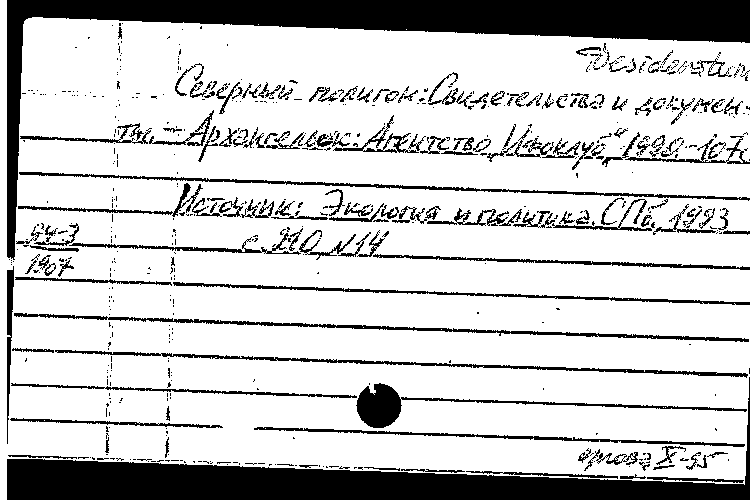 Desideratum
Северный полигон: Свидетельства и докумен-
ты. – Архангельск: Агентство „Инфоклуб“, 1990.-107с
Источник: Экология и политика. СПб., 1993
94-3
с. 210, N14
1907
X-95